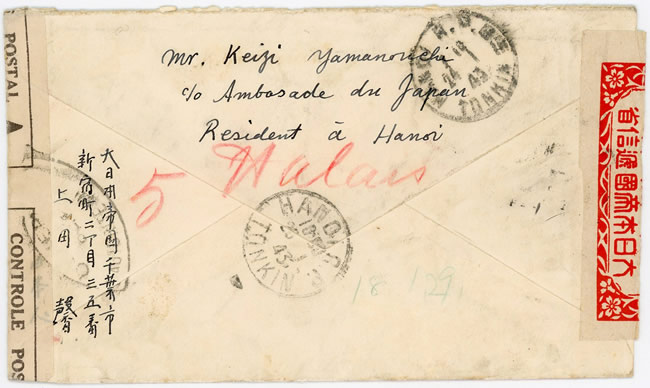 Mr. Keiji Yamanouchi
c/o Ambasade du Japan
Resident à Hanoi
5 Halais
大日本帝国千葉市
新宿町二丁目三五番
上田 馨
POSTAL
CONTROLE POS
大日本帝國逓信省
HANOI R.P.
TONKIN
43
HANOI R.P.
18
43
TONKIN
18 199.